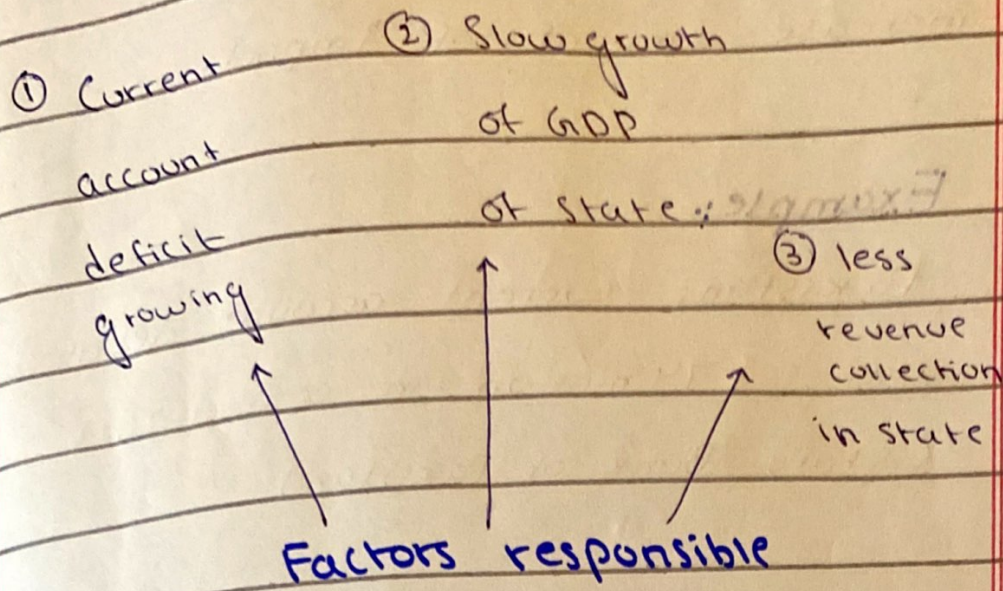 ① Current
account
deficit
growing
② Slow growth
of GDP
of state.
③ less
revenue
collection
in state
Factors responsible